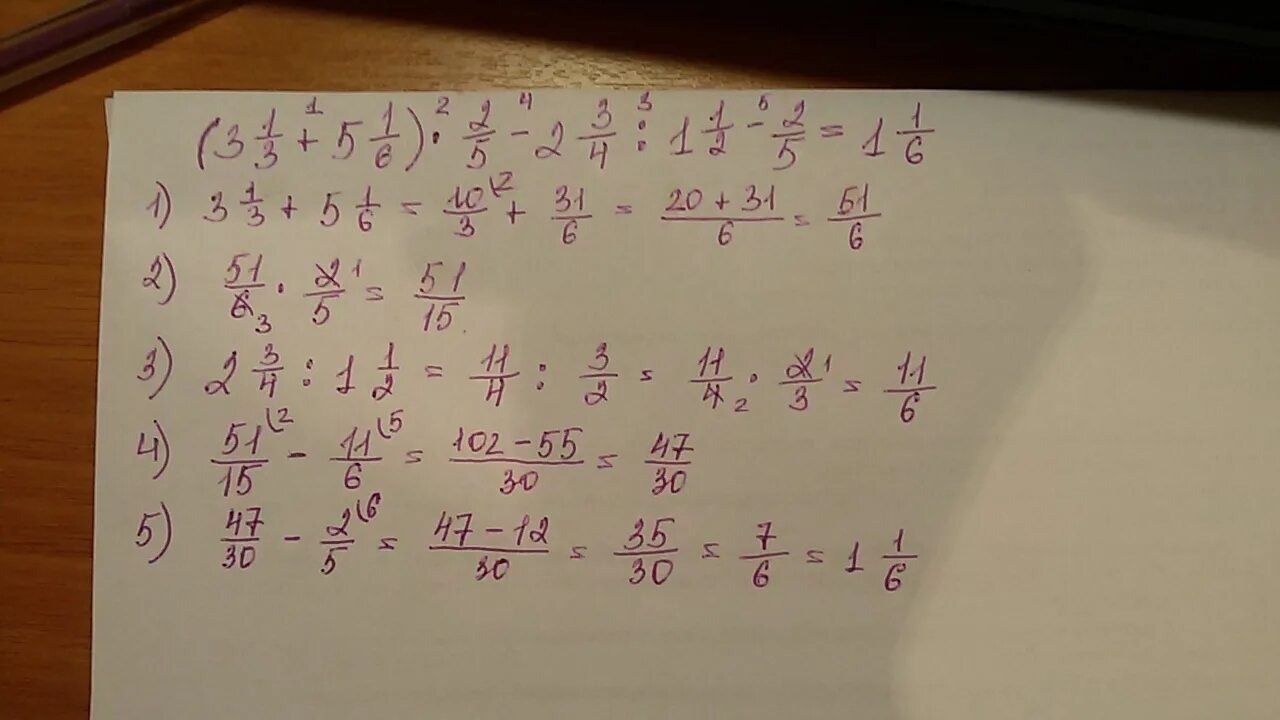 (3 1/3 +¹ 5 1/6) ·² 2/5 -⁴ 2 3/4 :³ 1 1/2 -⁵ 2/5 = 1 1/6
1) 3 1/3 + 5 1/6 = 10/3 \2 + 31/6 = 20 + 31/6 = 51/6
2) 51/6 3 · 2/5 1 = 51/15
3) 2 3/4 : 1 1/2 = 11/4 : 3/2 = 11/4 2 · 2/3 1 = 11/6
4) 51/15 \2 - 11/6 \5 = 102 - 55/30 = 47/30
5) 47/30 - 2/5 \6 = 47 - 12/30 = 35/30 = 7/6 = 1 1/6